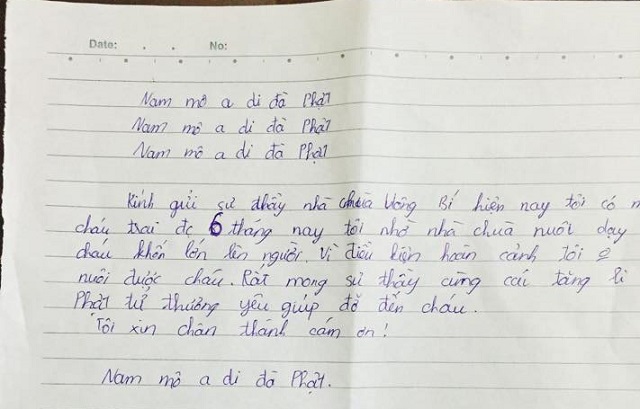 Date: . . No:
Nam mô a di đà Phật
Nam mô a di đà Phật
Nam mô a di đà Phật
Kính gửi sư thầy nhà chùa Uông Bí hiện nay tôi có m
cháu trai đc 6 tháng nay tôi nhờ nhà chùa nuôi dạy
cháu khôn lớn lên người. Vì điều kiện hoàn cảnh tôi
nuôi được cháu. Rất mong sư thầy cùng các tăng li
Phật tử thương yêu giúp đỡ đến cháu.
Tôi xin chân thành cám ơn!
Nam mô a di đà Phật.